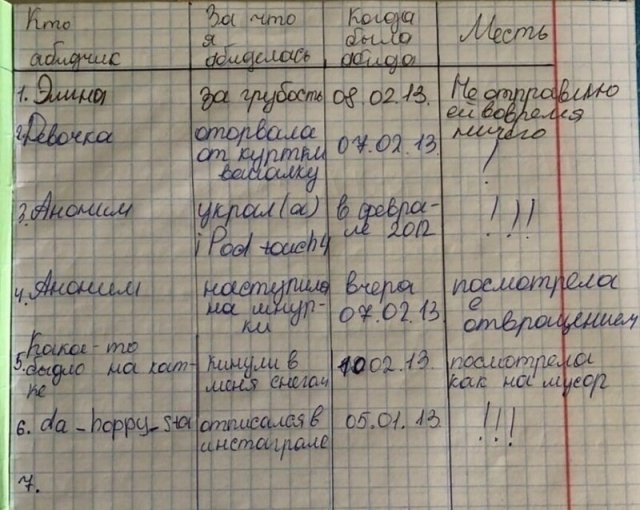 Кто абидчик | За что я абиделась | Когда была абида | Месть
1. Элина | за грубость | 08.02.13. | Не отправлю ей вовремя ничего
2. Девочка | оторвала от куртки вешалку | 07.02.13 | !
3. Аноним | украл(а) iPod touch 4 | в феврале 2012 | !!!
4. Аноним | наступила на шнурки | вчера 07.02.13 | посмотрела с отвращением
5. Какое-то быдло на катке | кинули в меня снегом | 10.02.13. | посмотрела как на мусор
6. da_happy_sta | отписался в инстаграме | 05.01.13 | !!!
7.